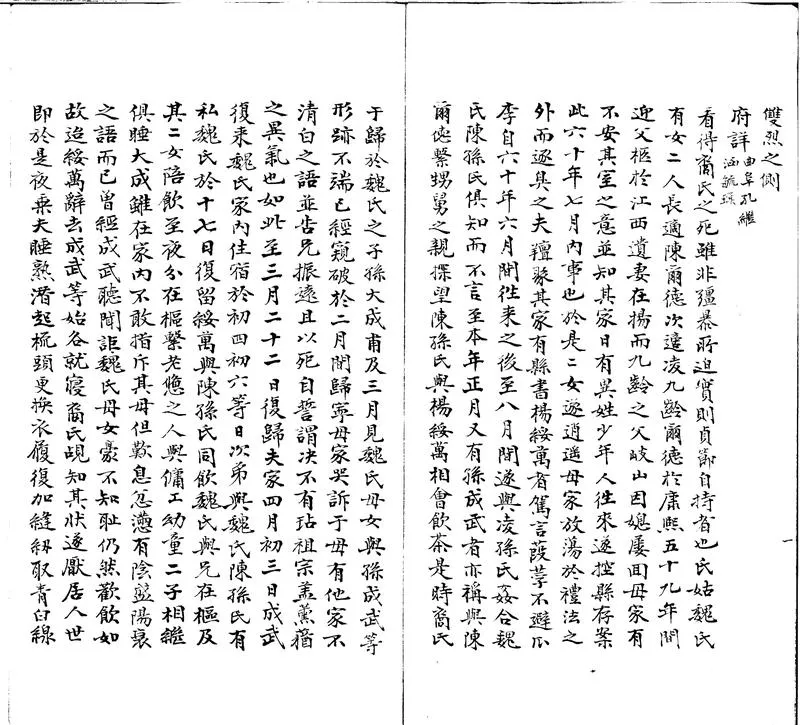 雙烈之側
府詳曲阜孔繼
涵毓琛
看得裔氏之死雖非彊暴所迫實則貞節自持者也氏姑魏氏
有女二人長適陳爾德次適凌九齡爾德於康熙五十九年間
迎父柩於江西遺妻在揚而九齡之父岐山因媳屢回母家有
不安其室之意並知其家日有異姓少年人往來遂控縣存案
此六十年七月內事也於是二女遂逍遥母家放蕩於禮法之
外而逐臭之夫羶聚其家有縣書楊綏萬者駕言葭莩不避瓜
李自六十年六月間往来之後至八月間遂與凌孫氏姦合魏
氏陳孫氏俱知而不言至本年正月又有孫成武者亦稱與陳
爾德繫甥舅之親探望陳孫氏與楊綏萬相會飲茶是時裔氏
于歸於魏氏之子孫大成甫及三月見魏氏母女與孫成武等
形跡不端已經窺破於二月間歸寧母家哭訴于母有他家不
清白之語並告兄振遠且以死自誓謂决不有玷祖宗盖薰蕕
之異氣也如此至三月二十二日復歸夫家四月初三日成武
復来魏氏家內住宿於初四初六等日次弟與魏氏陳孫氏有
私魏氏於十七日復留綏萬與陳孫氏同飲魏氏與兄在樞及
其二女陪飲至夜分在樞繫老憊之人與傭工幼童二子相繼
俱睡大成雖在家內不敢指斥其母但歎息忿懣有陰盛陽衰
之語而已曾經成武聽聞詎魏氏母女毫不知耻仍然歡飲如
故迨綏萬辭去成武等始各就寝裔氏覘知其狀遂厭居人世
即於是夜乗夫睡熟潜起梳頭更换衣履復加縫紉取青白線
一